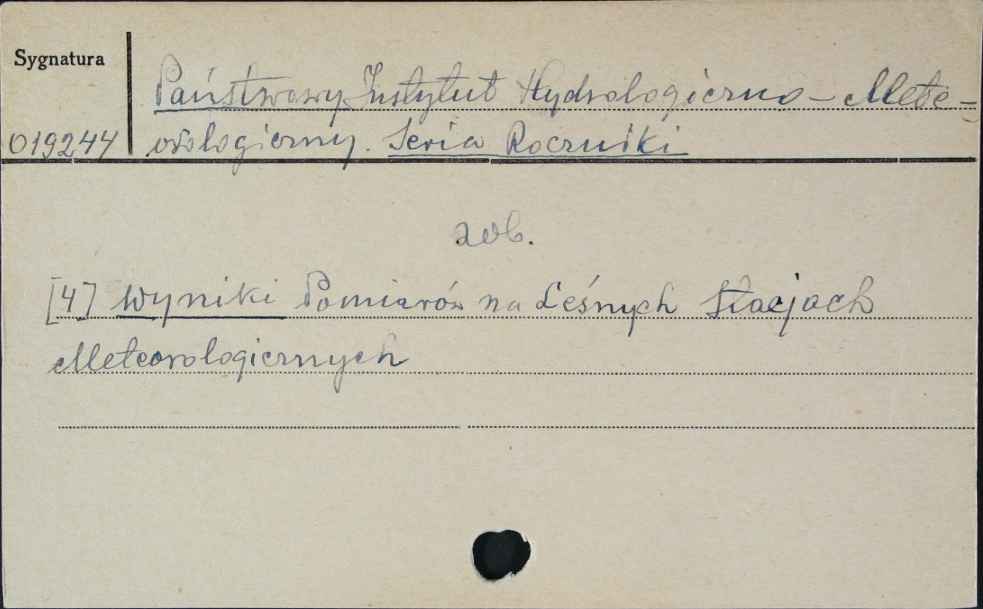 Sygnatura
Państwowy Instytut Hydrologiczno-Mete-
019244 orologiczny. Seria Roczniki
zob.
[4] Wyniki Pomiarów na Leśnych Stacjach
Meteorologicznych